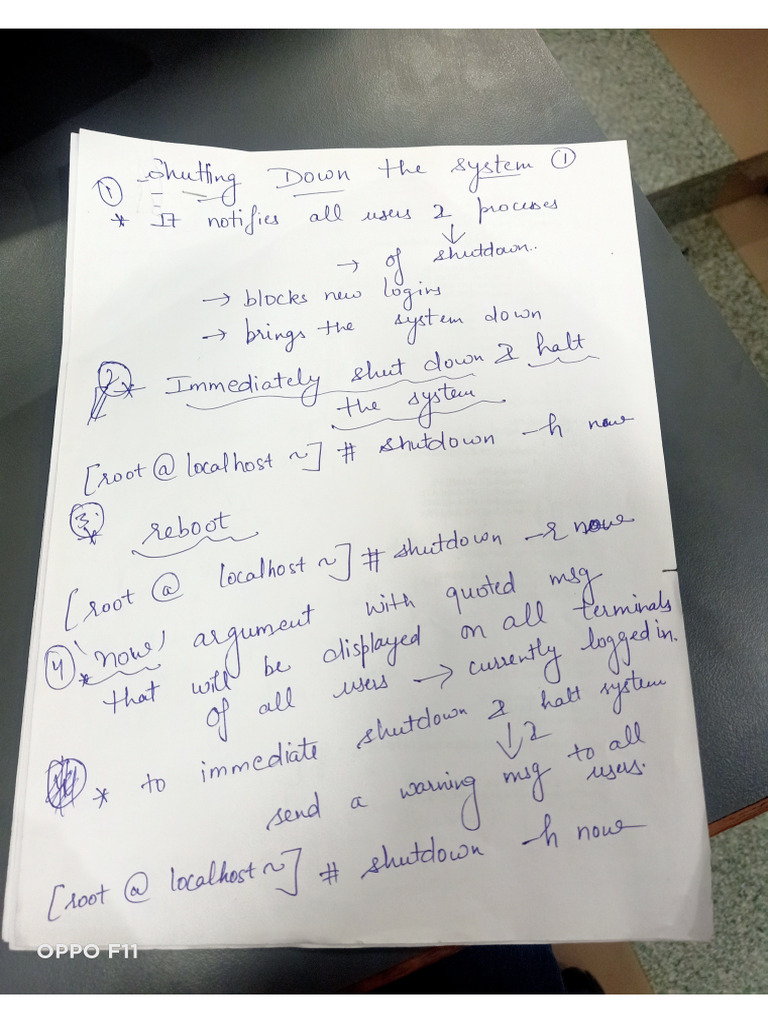 ① Shutting Down the system ①
* It notifies all users & processes
↓
→ of shutdown..
→ blocks new logins
→ brings the system down
2 * Immediately shut down & halt
the system
[root @ localhost ~] # shutdown -h now
③ * reboot
[root @ localhost ~] # shutdown -r now
④ * 'now' argument with quoted msg
that will be displayed on all terminals
of all users → currently logged in.
* to immediate shutdown & halt system
↓ &
send a warning msg to all
users.
[root @ localhost ~] # shutdown -h now
OPPO F11